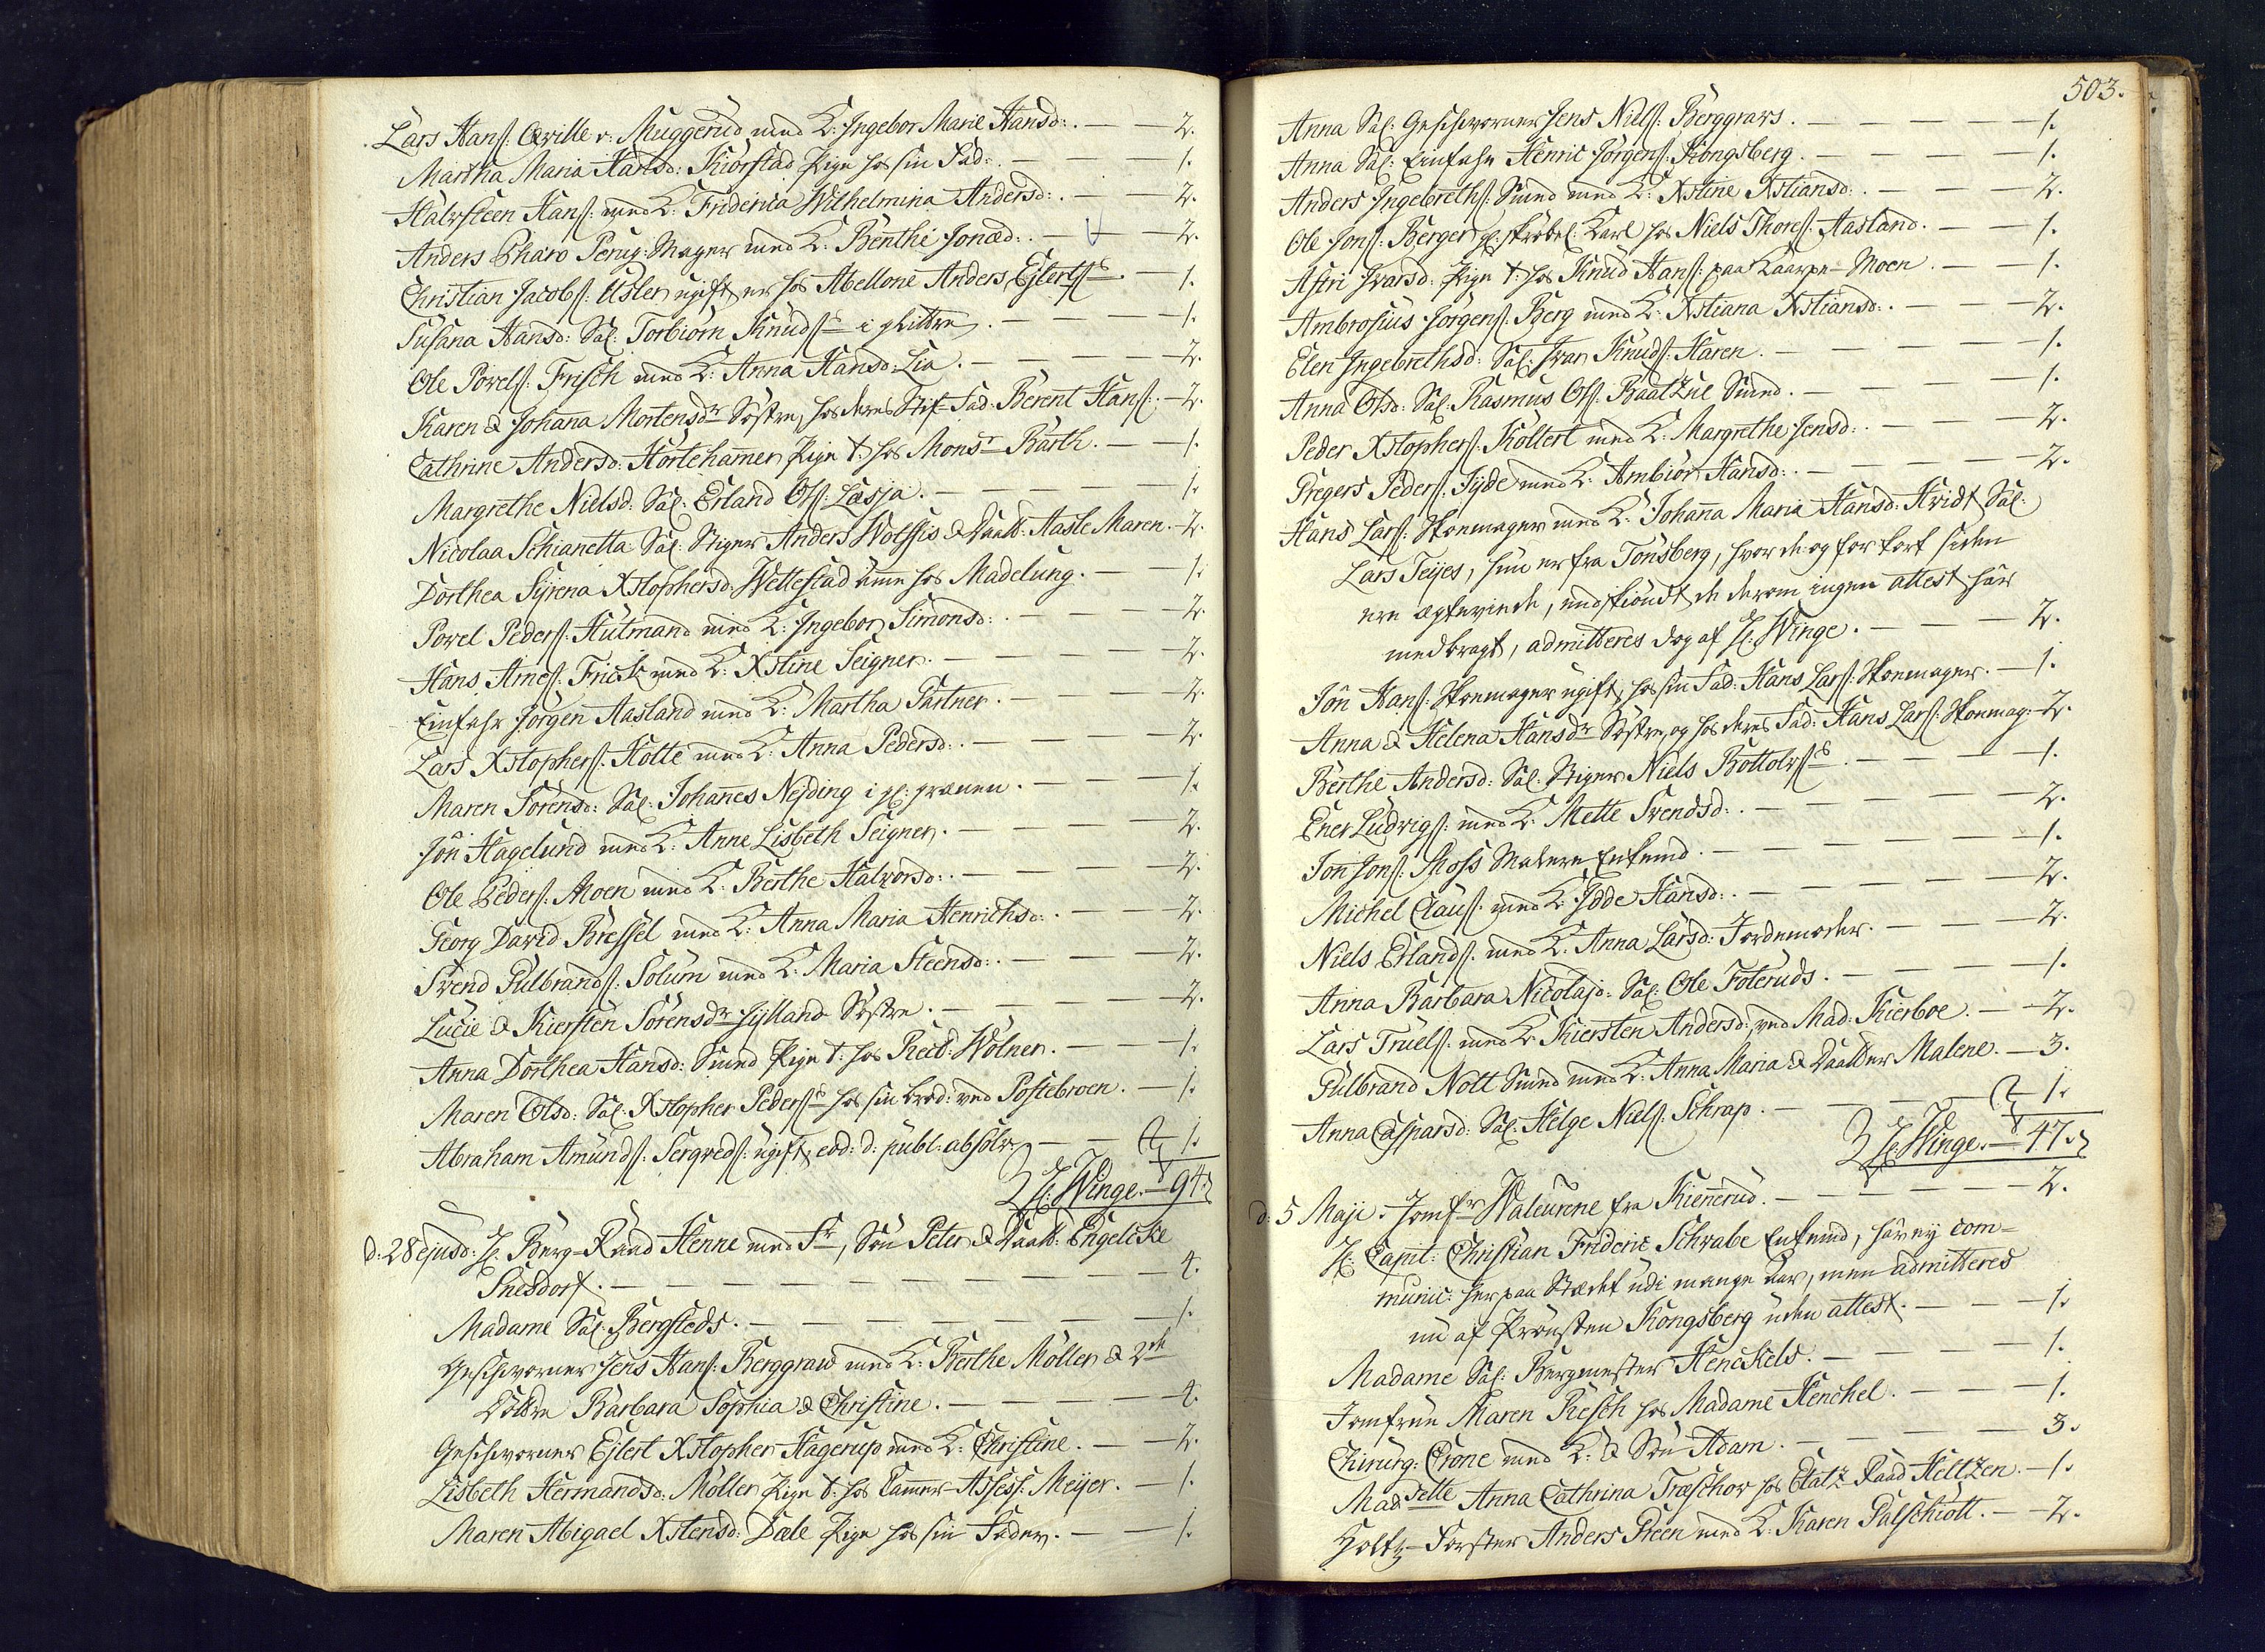 Lars Hanſ: Qville v. Muggerud med K: Ingebor Marie Hansd:. — 2.
Martha Maria Hansd: Kiörstad Pige hos sin Fad:. — 1.
Halvsteen Hanſ: med K: Friderica Wilhelmina Andersd:. — 2.
Anders Pharo Peruq: Mager med K: Benthe Jonæd:. — 2.
Christian Jacobſ: Usler ugift er hos Abellone Anders EJlertſ. — 1.
Susana Hansd: Sal: Torbiörn Knudſ i — 1.
Ole Povelſ: Frisch med K: Anna Hansd: Lia. — 2.
Karen & Johana Mortensdr Söstre, hos deres Stif-Fad: Berent Hanſ:. — 2.
Cathrine Andersd: Hörtehamer Pige t: hos Monsr Barth. — 1.
Margrethe Nielsd: Sal: Erland Olſ: Læsja. — 1.
Nicolaa Schianetta Sal: Stiger Anders Wolffis & Daatt: Aasle Maren. — 2.
Dorthea Syrena Xstophersd: Wettestad ame hos Madelung. — 1.
Povel Pederſ: Hutmand med K: Ingebor Simonsd:. — 2.
Hans Arneſ: Frick med K: Xstine Seigner. — 2.
Einfahr Jörgen Aasland med K: Martha Gartner. — 2.
Lars Xstopherſ: Hotte med K: Anna Pedersd:. — 2.
Maren Sörensd: Sal: Johanes Nejding i gl: — 1.
Jön Hagelund med K: Anne Lisbeth Seigner. — 2.
Ole Pederſ: Moen med K: Berthe Halvorsd:. — 2.
Georg David Bressel med K: Anna Maria Henrichsd:. — 2.
Svend Gulbrandſ: Solum med K: Maria Steensd:. — 2.
Lucie & Kiersten Sörensdr Jylland Söstre. — 2.
Anna Dorthea Hansd: Smed Pige t: hos Recd: Wölner. — 1.
Maren Olsd: Sal: Xstopher Pederſ hos sin brod: ved Postebroen. — 1.
Abraham Amundſ: Sergvedſ: ugift, eod: d: publ: absolv: — 1.
H: Winge. — 94.
d: 28 ejusd: H: Berg-Raad Henne med Fr, Sön Peter & Daatt: Engelcke
Snesdorf. — 4.
Madame Sal: Bergsteds. — 1.
Geschworner Jens Hanſ: Berggraw med K: Berthe Möller & 2de
Döttre Barbara Sophia & Christine. — 4.
Geschworner Ejlert Xstopher Hagerup med K: Christine. — 2.
Lisbeth Hermandsd: Möller Pige t: hos Cammer-Assess: Meyer. — 1.
Maren Abigael Xstensd: Dæle Pige hos sin Fader. — 1.
503.
Anna Sal: Geschworner Jens Nielſ: Berggravs. — 1.
Anna Sal: Einfahr Henric Jörgenſ: Kongsberg. — 1.
Anders Ingebrethſ: Smed med K: Xstine Xstiansd:. — 2.
Ole Jonſ: Berger Karl hos Niels Thoreſ: Aasland. — 1.
Astri Ivarsd: Pige t: hos Knud Hanſ: paa Moen. — 1.
Ambrosius Jörgenſ: Berg med K: Xstiana Xstiansd:. — 2.
Elen Ingebrethsd: Sal: Ivar Knudſ: Haren. — 1.
Anna Olsd: Sal: Rasmus Olſ: Baatzue Smed. — 1.
Peder Xstopherſ: Kollert med K: Margrethe Jensd:. — 2.
Pregers Pederſ: Jyde med K: Ambiör Hansd:. — 2.
Hans Larſ: Skoemager med K: Johana Maria Hansd: Hvidt Sal:
Lars Teijes, hun er fra Tönsberg, hvor de og for kort siden
ere ægteviede, endskiöndt de derom ingen attest har
medbragt, admitteres dog af H: Winge. — 2.
Jön Hanſ: Skoemager ugift, hos sin Fad: Hans Larſ: Skoemager. — 1.
Anna & Helena Hansdr Söstre, og hos deres Fad: Hans Larſ: Skoemag: — 2.
Berthe Andersd: Sal: Stiger Niels Bottolvſ. — 1.
Ener Ludvigſ: med K: Mette Svendsd:. — 2.
Jon Jonſ: Moss Malere Enkemd. — 1.
Michel Clauſ: med K: Jdde Hansd:. — 2.
Niels Erlandſ: med K: Anna Larsd: Jordemoder. — 2.
Anna Barbara Nicolajd: Sal: Ole Foteruds. — 1.
Lars Truelſ: med K: Kiersten Andersd: ved Mad: Kierboe. — 2.
Gulbrand Nott Smed med K: Anna Maria & Daatter Malene. — 3.
Anna Caspersd: Sal: Helge Nielſ: Schrap. — 1.
H: Winge. — 47.
d: 5 Maji. Jomfr Waleurene fra Kienerud. — 2.
H: Capit: Christian Frideric Schwabe Enkemd, har ey com-
munic: her paa Stedet udi mange Aar, men admitteres
nu af Provsten Kongsberg uden attest. — 1.
Madame Sal: Bergmester Henckels. — 1.
Jomfrue Maren Resch hos Madame Henchel. — 1.
Chirurg: Crone med K: & Sön Adam. — 3.
Madselle Anna Cathrina Træschow hos Etatz-Raad Heltzen. — 1.
Holtz-Forster Anders Preen med K: Karen Palschiött. — 2.